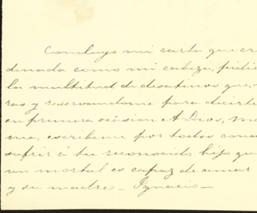 Concluyo mi carta que
denada como mi cabeza,
la multitud de desatinos que
ras y reservandome para decirte
en primera ocasion. A Dios,
escribeme por todos
sufrir á tu reconocido hijo que
un mortal es capaz de amar
y su madre. - Ignacio -